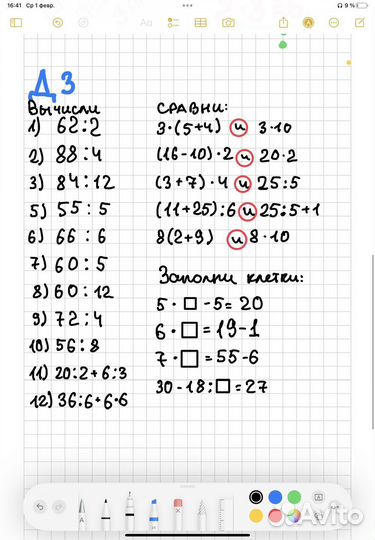 16:41 Ср 1 февр.
9 %
Aa
ДЗ
Вычисли
1) 62:2
2) 88:4
3) 84:12
5) 55:5
6) 66:6
7) 60:5
8) 60:12
9) 72:4
10) 56:8
11) 20:2+6:3
12) 36:6+6·6
СРАВНИ:
3·(5+4) и 3·10
(16-10)·2 и 20·2
(3+7)·4 и 25:5
(11+25):6 и 25:5+1
8(2+9) и 8·10
Заполни клетки:
5·□-5=20
6·□=19-1
7·□=55-6
30-18:□=27
A
Avito